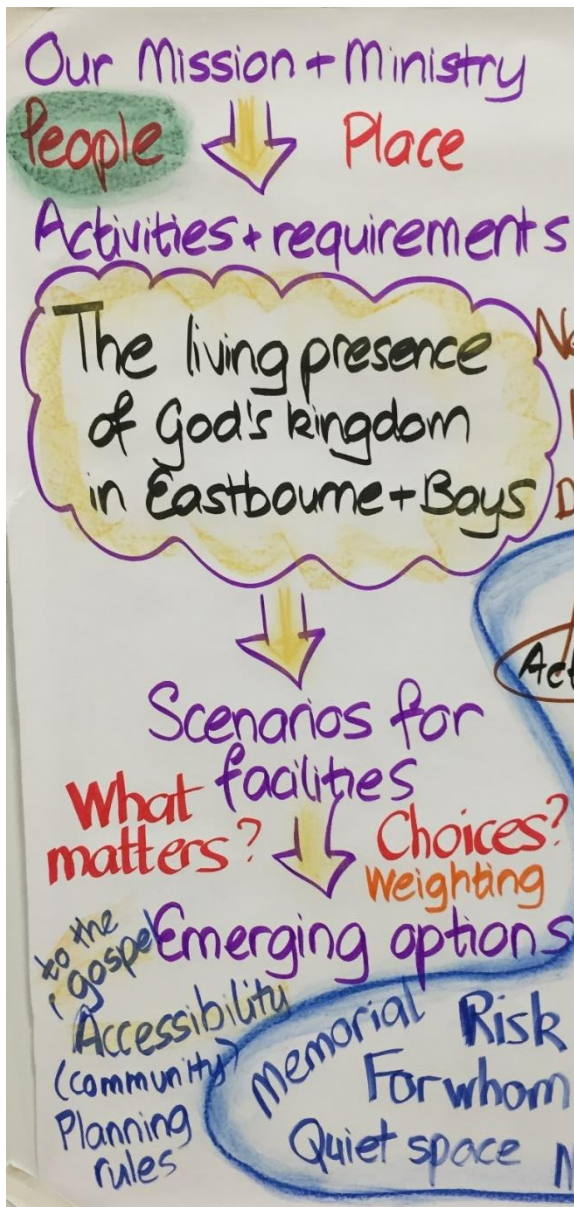 Our Mission + Ministry
People Place
Activities + requirements
The living presence
of God's kingdom
in Eastbourne + Bays
Scenarios for
facilities
What
matters?
Choices?
Weighting
Emerging options
to the
gospel
Accessibility
(community)
Planning
rules
Memorial
Risk
For whom
Quiet space